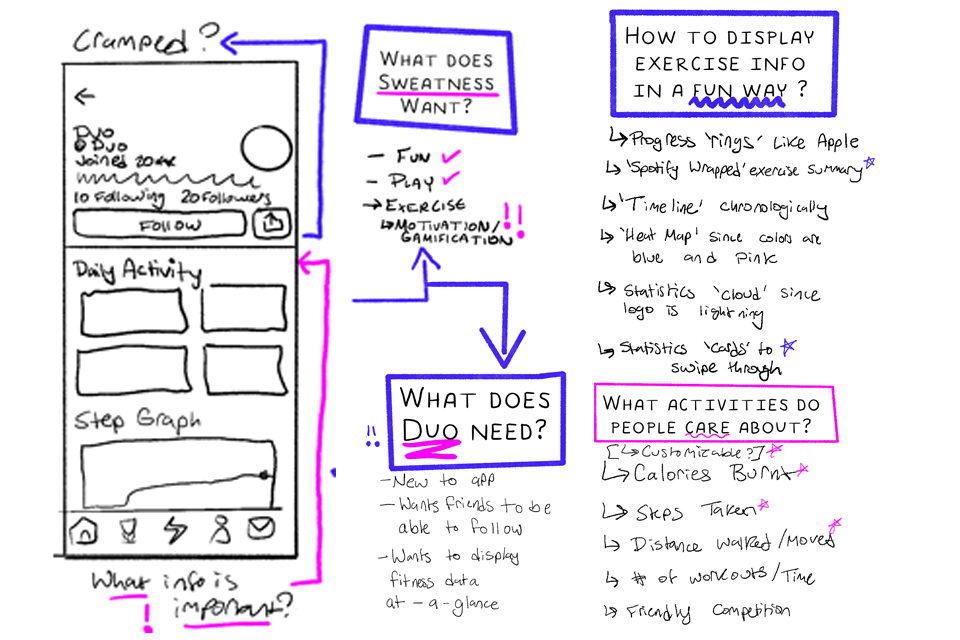 Cramped?
Duo
@Duo
Joined 20
10 Following 20 Followers
Follow
Daily Activity
Step Graph
What info is
important?
!
What does
Sweatness
Want?
- Fun
- Play
→ Exercise
↳ Motivation/
Gamification
!!
What does
Duo need?
!!
- New to app
- Wants friends to be
able to follow
- Wants to display
fitness data
at-a-glance
How to display
exercise info
in a fun way?
↳ Progress 'rings' Like Apple
↳ 'Spotify Wrapped' exercise summary
↳ 'Timeline' chronologically
↳ 'Heat Map' since colors are
blue and pink
↳ Statistics 'cloud' since
logo is lightning
↳ Statistics 'cards' to
swipe through
What activities do
people care about?
[↳ Customizable?]
↳ Calories Burnt
↳ Steps Taken
↳ Distance walked/moved
↳ # of workouts/Time
↳ Friendly Competition